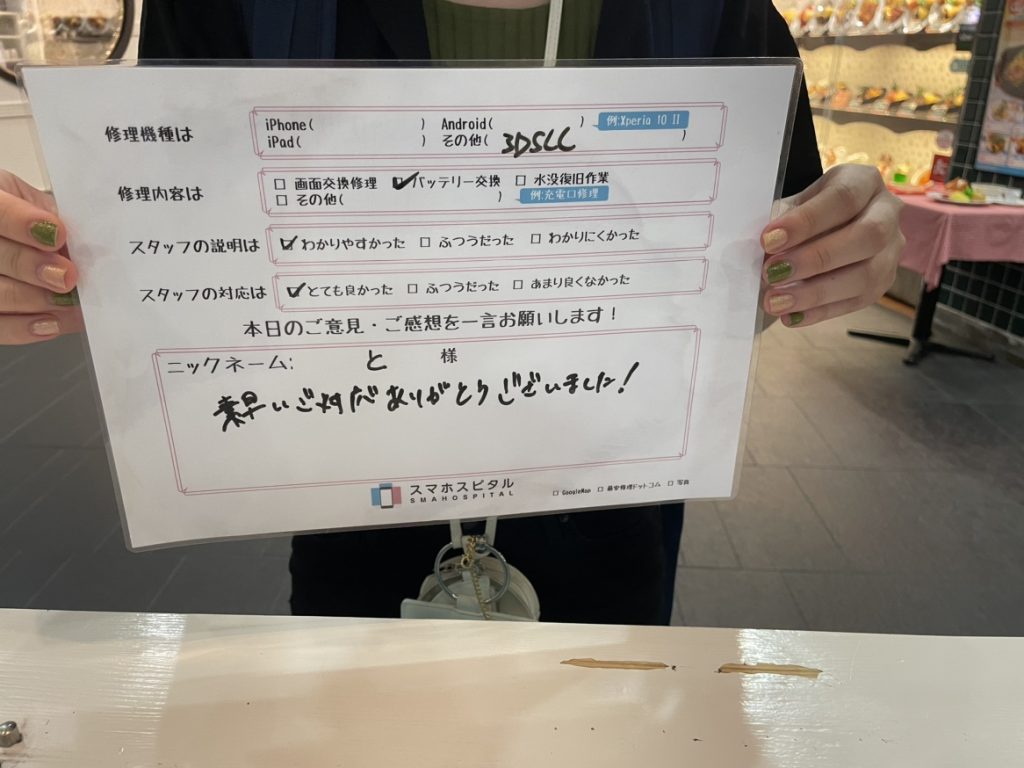 修理機種は
iPhone( ) Android( ) 例:Xperia 10 II
iPad( ) その他( 3DSLL )
修理内容は
□ 画面交換修理 ☑ バッテリー交換 □ 水没復旧作業
□ その他( ) 例:充電口修理
スタッフの説明は
☑ わかりやすかった □ ふつうだった □ わかりにくかった
スタッフの対応は
☑ とても良かった □ ふつうだった □ あまり良くなかった
本日のご意見・ご感想を一言お願いします!
ニックネーム: と 様
素早いご対応ありがとうございました!
スマホスピタル
SMAHOSPITAL
□ GoogleMap □ 最安修理ドットコム □ 写真